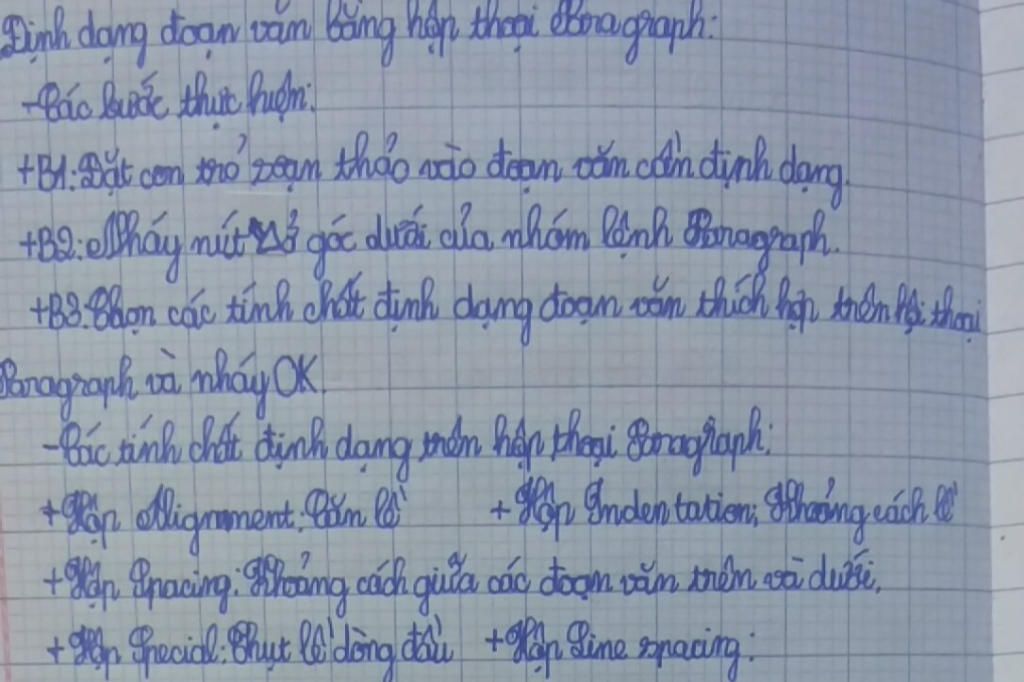 Định dạng đoạn văn bằng hộp thoại Paragraph:
-Các bước thực hiện:
+B1: Đặt con trỏ soạn thảo vào đoạn văn cần định dạng.
+B2: Nháy nút ở góc dưới của nhóm lệnh Paragraph.
+B3: Chọn các tính chất định dạng đoạn văn thích hợp trên hội thoại
Paragraph và nháy OK.
-Các tính chất định dạng trên hộp thoại Paragraph:
+Hộp Alignment: Căn lề +Hộp Indentation: Khoảng cách lề
+Hộp Spacing: Khoảng cách giữa các đoạn văn trên và dưới.
+Hộp Special: Thụt lề dòng đầu +Hộp Line spacing: